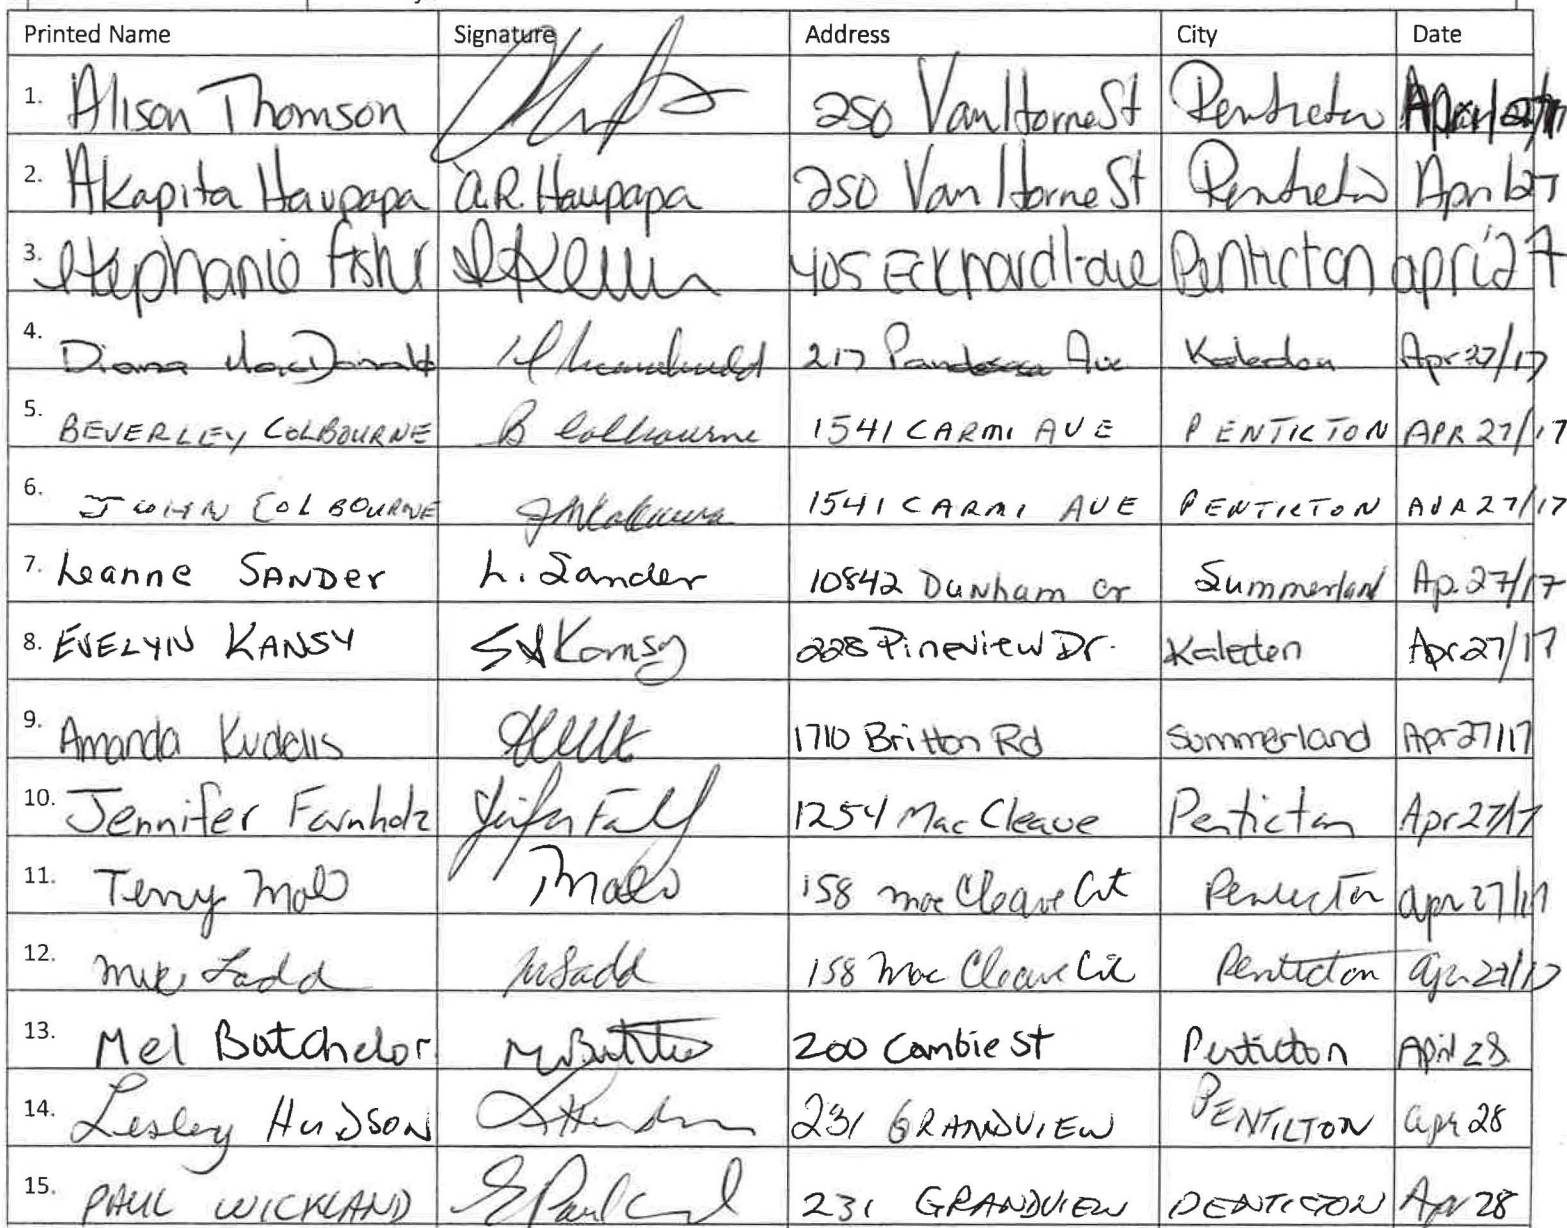 Printed Name Signature Address City Date
1. Alison Thomson 250 Van Horne St Penticton April 27/17
2. Akapita Haupapa A.R. Haupapa 250 Van Horne St Penticton April 27
3. Stephanie Fisher 405 Eckhardt ave Penticton april 27
4. Diana MacDonald 217 Ave Kaleden Apr 27/17
5. BEVERLEY COLBOURNE B Colbourne 1541 CARMI AVE PENTICTON APR 27/17
6. JOHN COLBOURNE 1541 CARMI AVE PENTICTON APR 27/17
7. Leanne SANDER L. Sander 10842 Dunham cr Summerland Ap. 27/17
8. EVELYN KANSY Kansy 228 Pineview Dr. Kaleden Apr 27/17
9. Amanda Kudelis 1710 Britton Rd Summerland Apr 27/17
10. Jennifer Farnholz 1254 MacCleave Penticton Apr 27/17
11. Terry Malo TMalo 158 MacCleave Crt Penticton Apr 27/17
12. Mike Ladd M Ladd 158 MacCleave Penticton Apr 27/17
13. Mel Batchelor 200 Cambie St Penticton April 28
14. Lesley HUDSON 231 GRANDVIEW PENTICTON Apr 28
15. PAUL WICKLAND 231 GRANDVIEW PENTICTON Apr 28